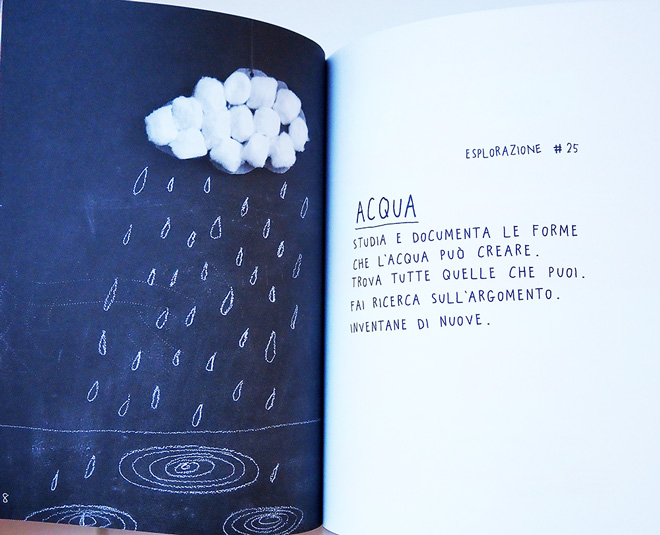 8
ESPLORAZIONE #25
ACQUA
STUDIA E DOCUMENTA LE FORME
CHE L'ACQUA PUÒ CREARE.
TROVA TUTTE QUELLE CHE PUOI.
FAI RICERCA SULL'ARGOMENTO.
INVENTANE DI NUOVE.